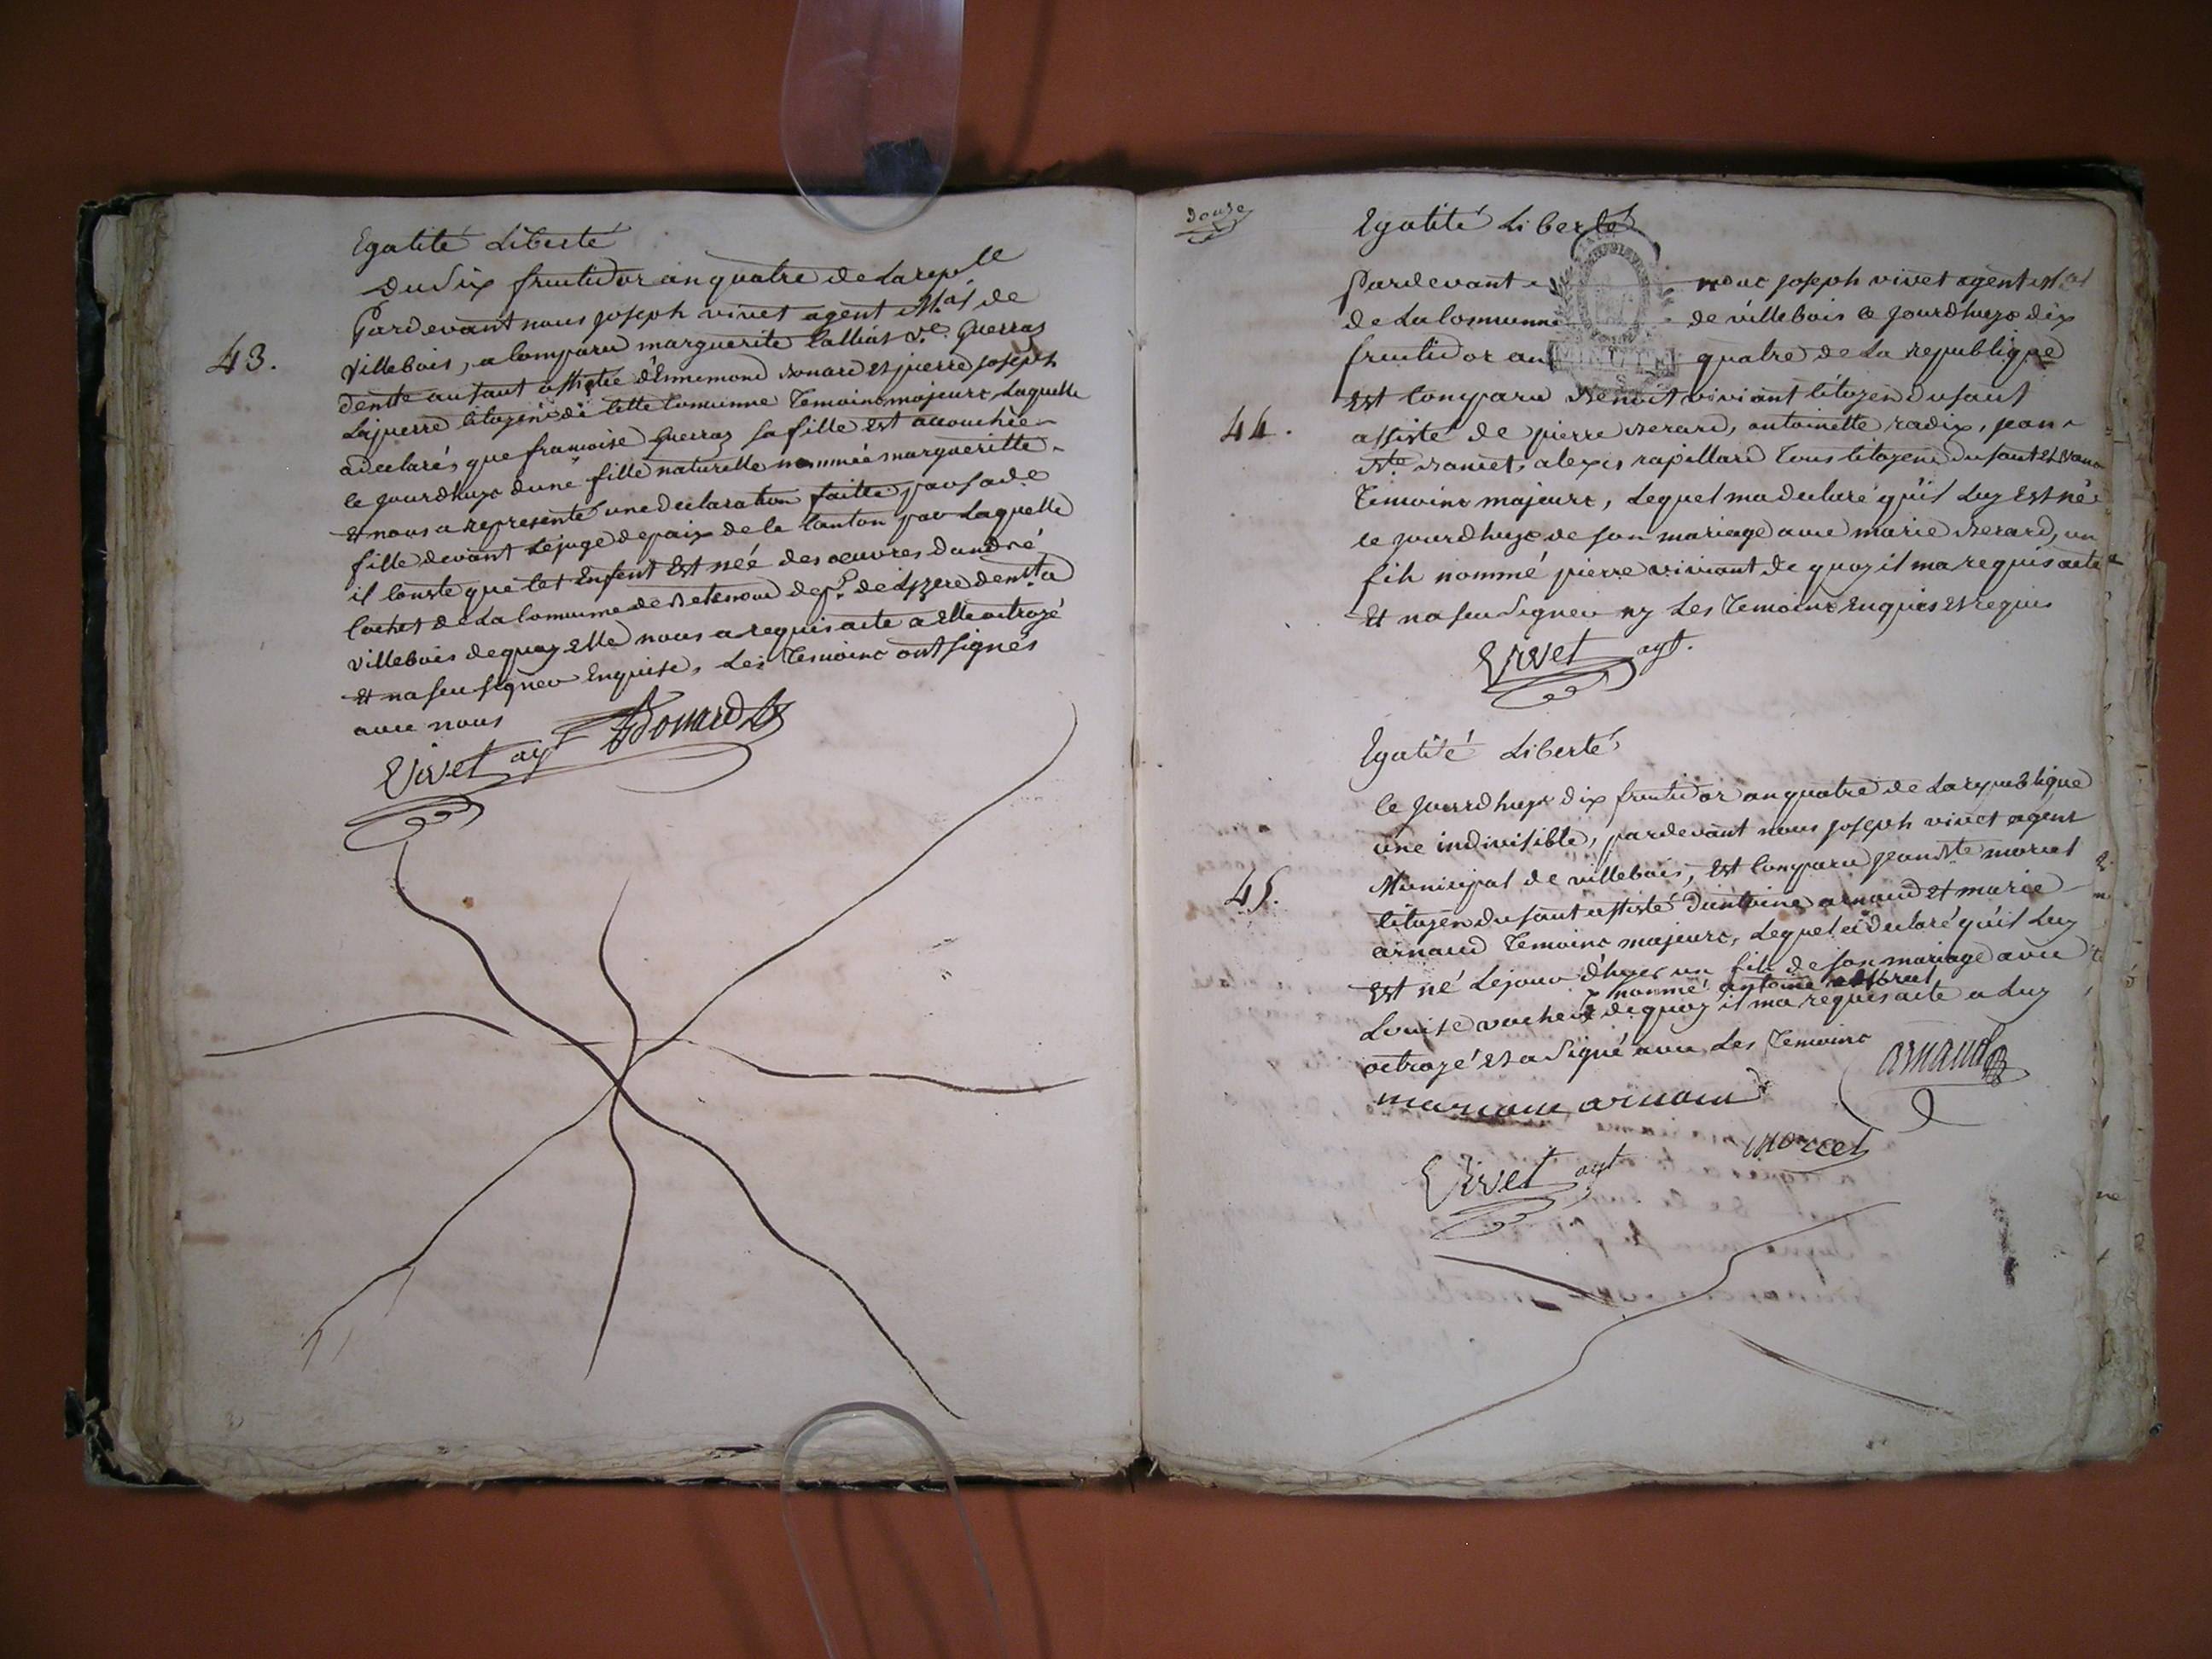 Egalité Liberté
Du six fructidor an quatre de la rep.lle
43.
Pardevant nous joseph vivet agent M.al de
villebois, a comparu marguerite v.e Guerras
denst du saut assistée d'Ennemond et pierre joseph
citoyens de cette comunne Temoins majeurs, Laquelle
a declarés que francoise Guerras sa fille Est accouchée
ce jourdhuys dune fille naturelle nommée margueritte
Et nous a representé une declaration faitte par sad.e
fille devant Lejuge de paix de ce canton par Laquelle
il conste que cet Enfent Est née des oeuvres dandré
cochet de La comunne de dep.t de Lizere den.st a
villebois dequoy Elle nous a requis acte a Elle octroyé
Et na seu signer Enquise, Les Temoins ont signés
avec nous
Vivet agt
douze
Egalité Liberté
Pardevant nous joseph vivet agent M.al
de La Comunne de villebois ce jourdhuys dix
fructidor an quatre de La republique
44.
Est comparu Benoit viviant citoyen du saut
assisté de pierre Berard, antoinette radix, jean
B.te alexis rapillard Tous citoyens du saut
Temoins majeurs, Lequel ma declaré qu'il Luy Est né
ce jourdhuys de son mariage avec marie Berard, un
fils nommé pierre viviant de quoy il ma requis acte
Et na seu signer ny Les Temoins Enquis Et requis
Vivet agt.
Egalité Liberté
ce jourdhuys dix fructidor an quatre de La republique
une indivisible, pardevant nous joseph vivet agent
Municipal de villebois, Est comparu jean B.te morcel
45.
citoyen du saut assisté d'antoine arnaud et marie
arnaud Temoins majeurs, Lequel a declaré qu'il Luy
Est né Lejour d'hyer un fils de son mariage avec
x nommé antoine morcel
Louise vacher x dequoy il ma requis acte a Luy
octroyé Et a signé avec Les Temoins
arnaud
mariane arnaud
morcel
Vivet agt